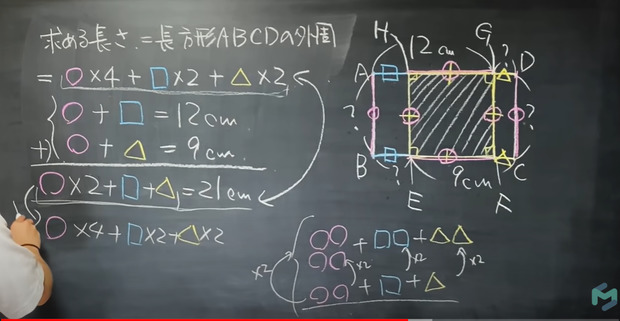 求める長さ=長方形ABCDの外周
=○×4+□×2+△×2
○+□=12cm
+) ○+△=9cm
○×2+□+△=21cm
○×4+□×2+△×2
H
G
12cm
?
A
□
○
△
D
?
○
○
○
○
?
B
□
?
○
△
C
9cm
E
F
○○+□□+△△
○○
×2
×2
×2
×2
○○+□+△